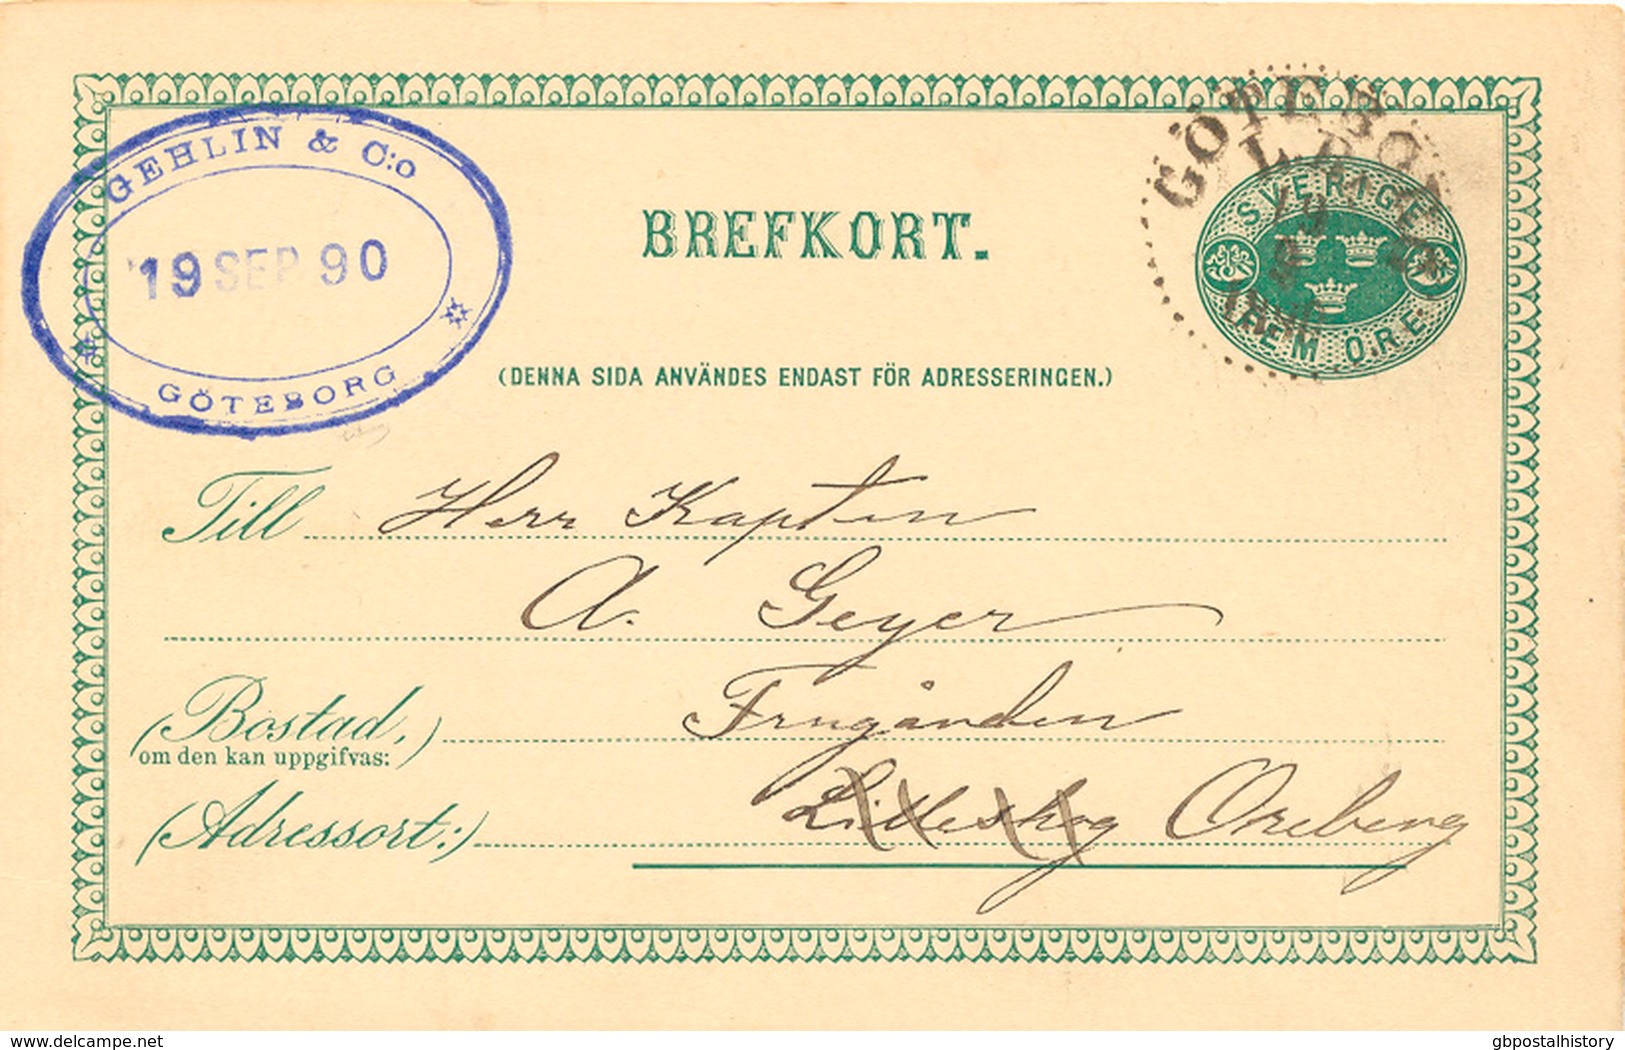 GEHLIN & C:o
19 SEP 90
GÖTEBORG
GÖTEBORG
L.B.
19
9
SVERIGE
FEM ÖRE
BREFKORT.
(DENNA SIDA ANVÄNDES ENDAST FÖR ADRESSERINGEN.)
Till Herr Kapten
A. Geyer
(Bostad,)
om den kan uppgifvas:
(Adressort:) Lilleskog Örebeng
© www.delcampe.net
gbpostalhistory